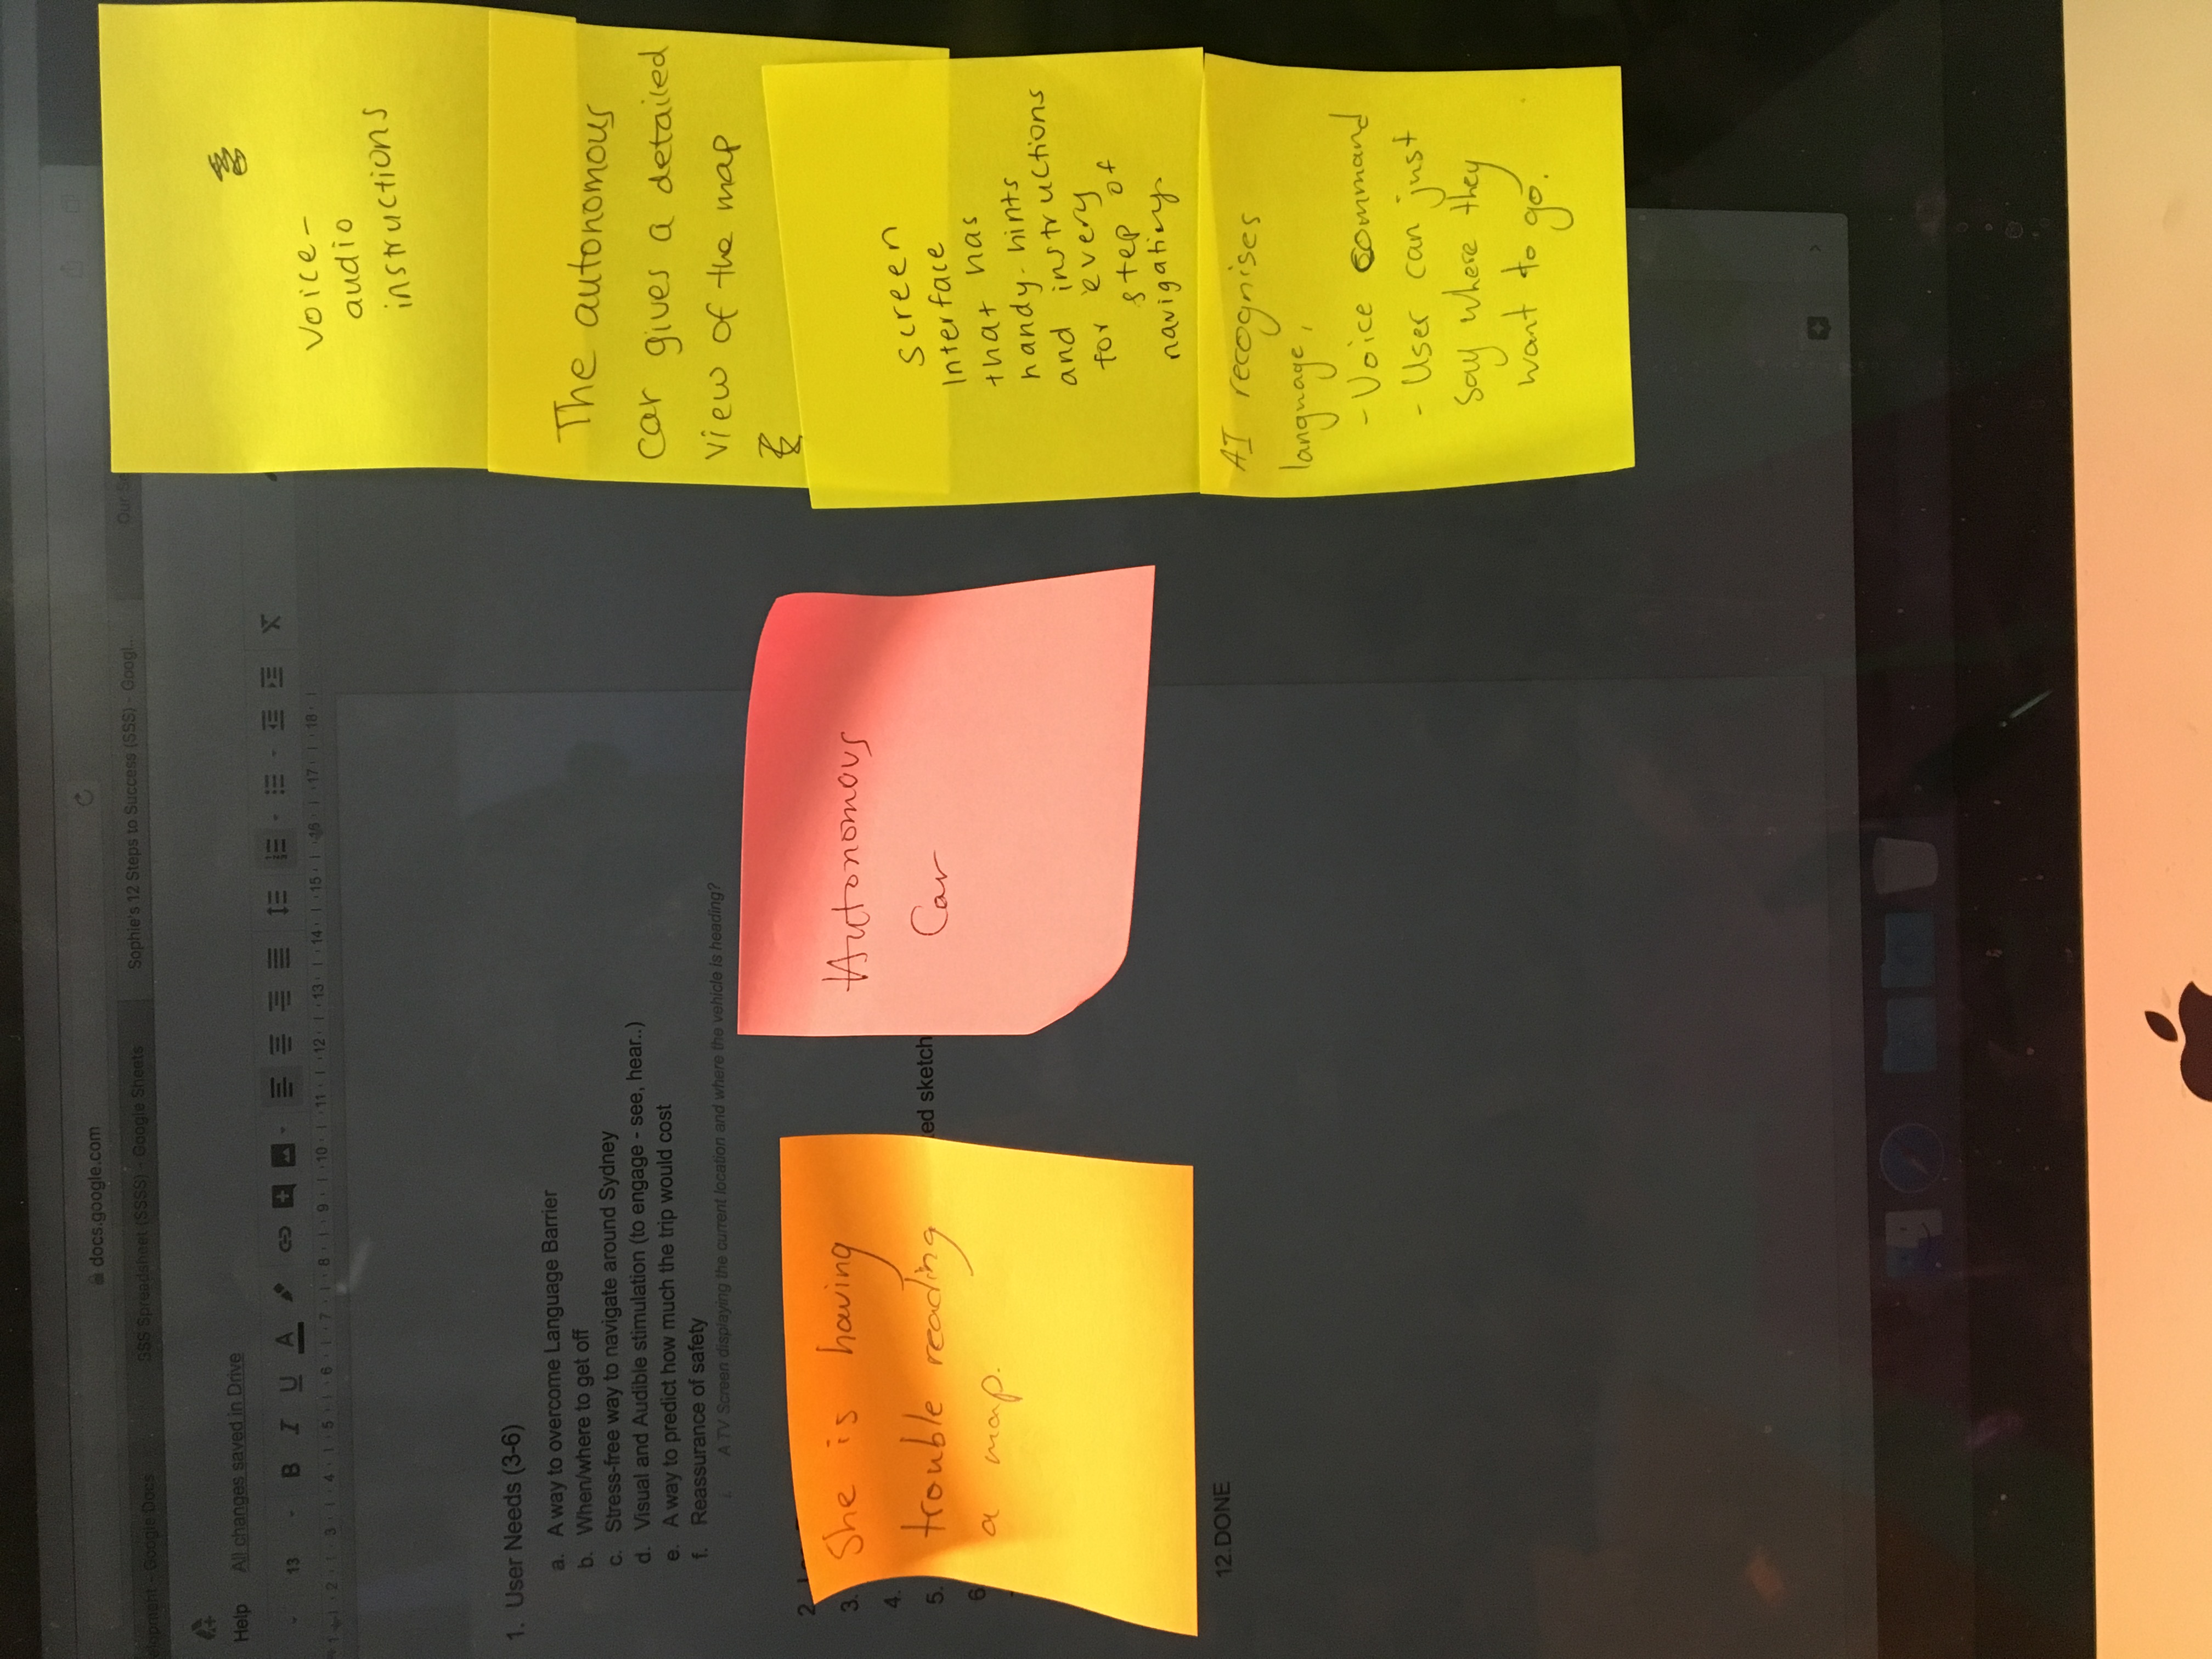 docs.google.com
elopment - Google Docs
SSS Spreadsheet (SSSS) - Google Sheets
Sophie's 12 Steps to Success (SSS) - Googl...
Our Se
Help All changes saved in Drive
13 B I U A
1 2 3 4 5 6 7 8 9 10 11 12 13 14 15 16 17 18
1. User Needs (3-6)
a. A way to overcome Language Barrier
b. When/where to get off
c. Stress-free way to navigate around Sydney
d. Visual and Audible stimulation (to engage - see, hear..)
e. A way to predict how much the trip would cost
f. Reassurance of safety
i. A TV Screen displaying the current location and where the vehicle is heading?
2.
3.
4.
5. ed sketch
6
12.DONE
She is having
trouble reading
a map.
Autonomous
Car
Voice-
audio
instructions
The autonomous
car gives a detailed
view of the map
screen
Interface
that has
handy-hints
and instructions
for every
step of
navigating
AI recognises
language,
- Voice command
- User can just
say where they
want to go.